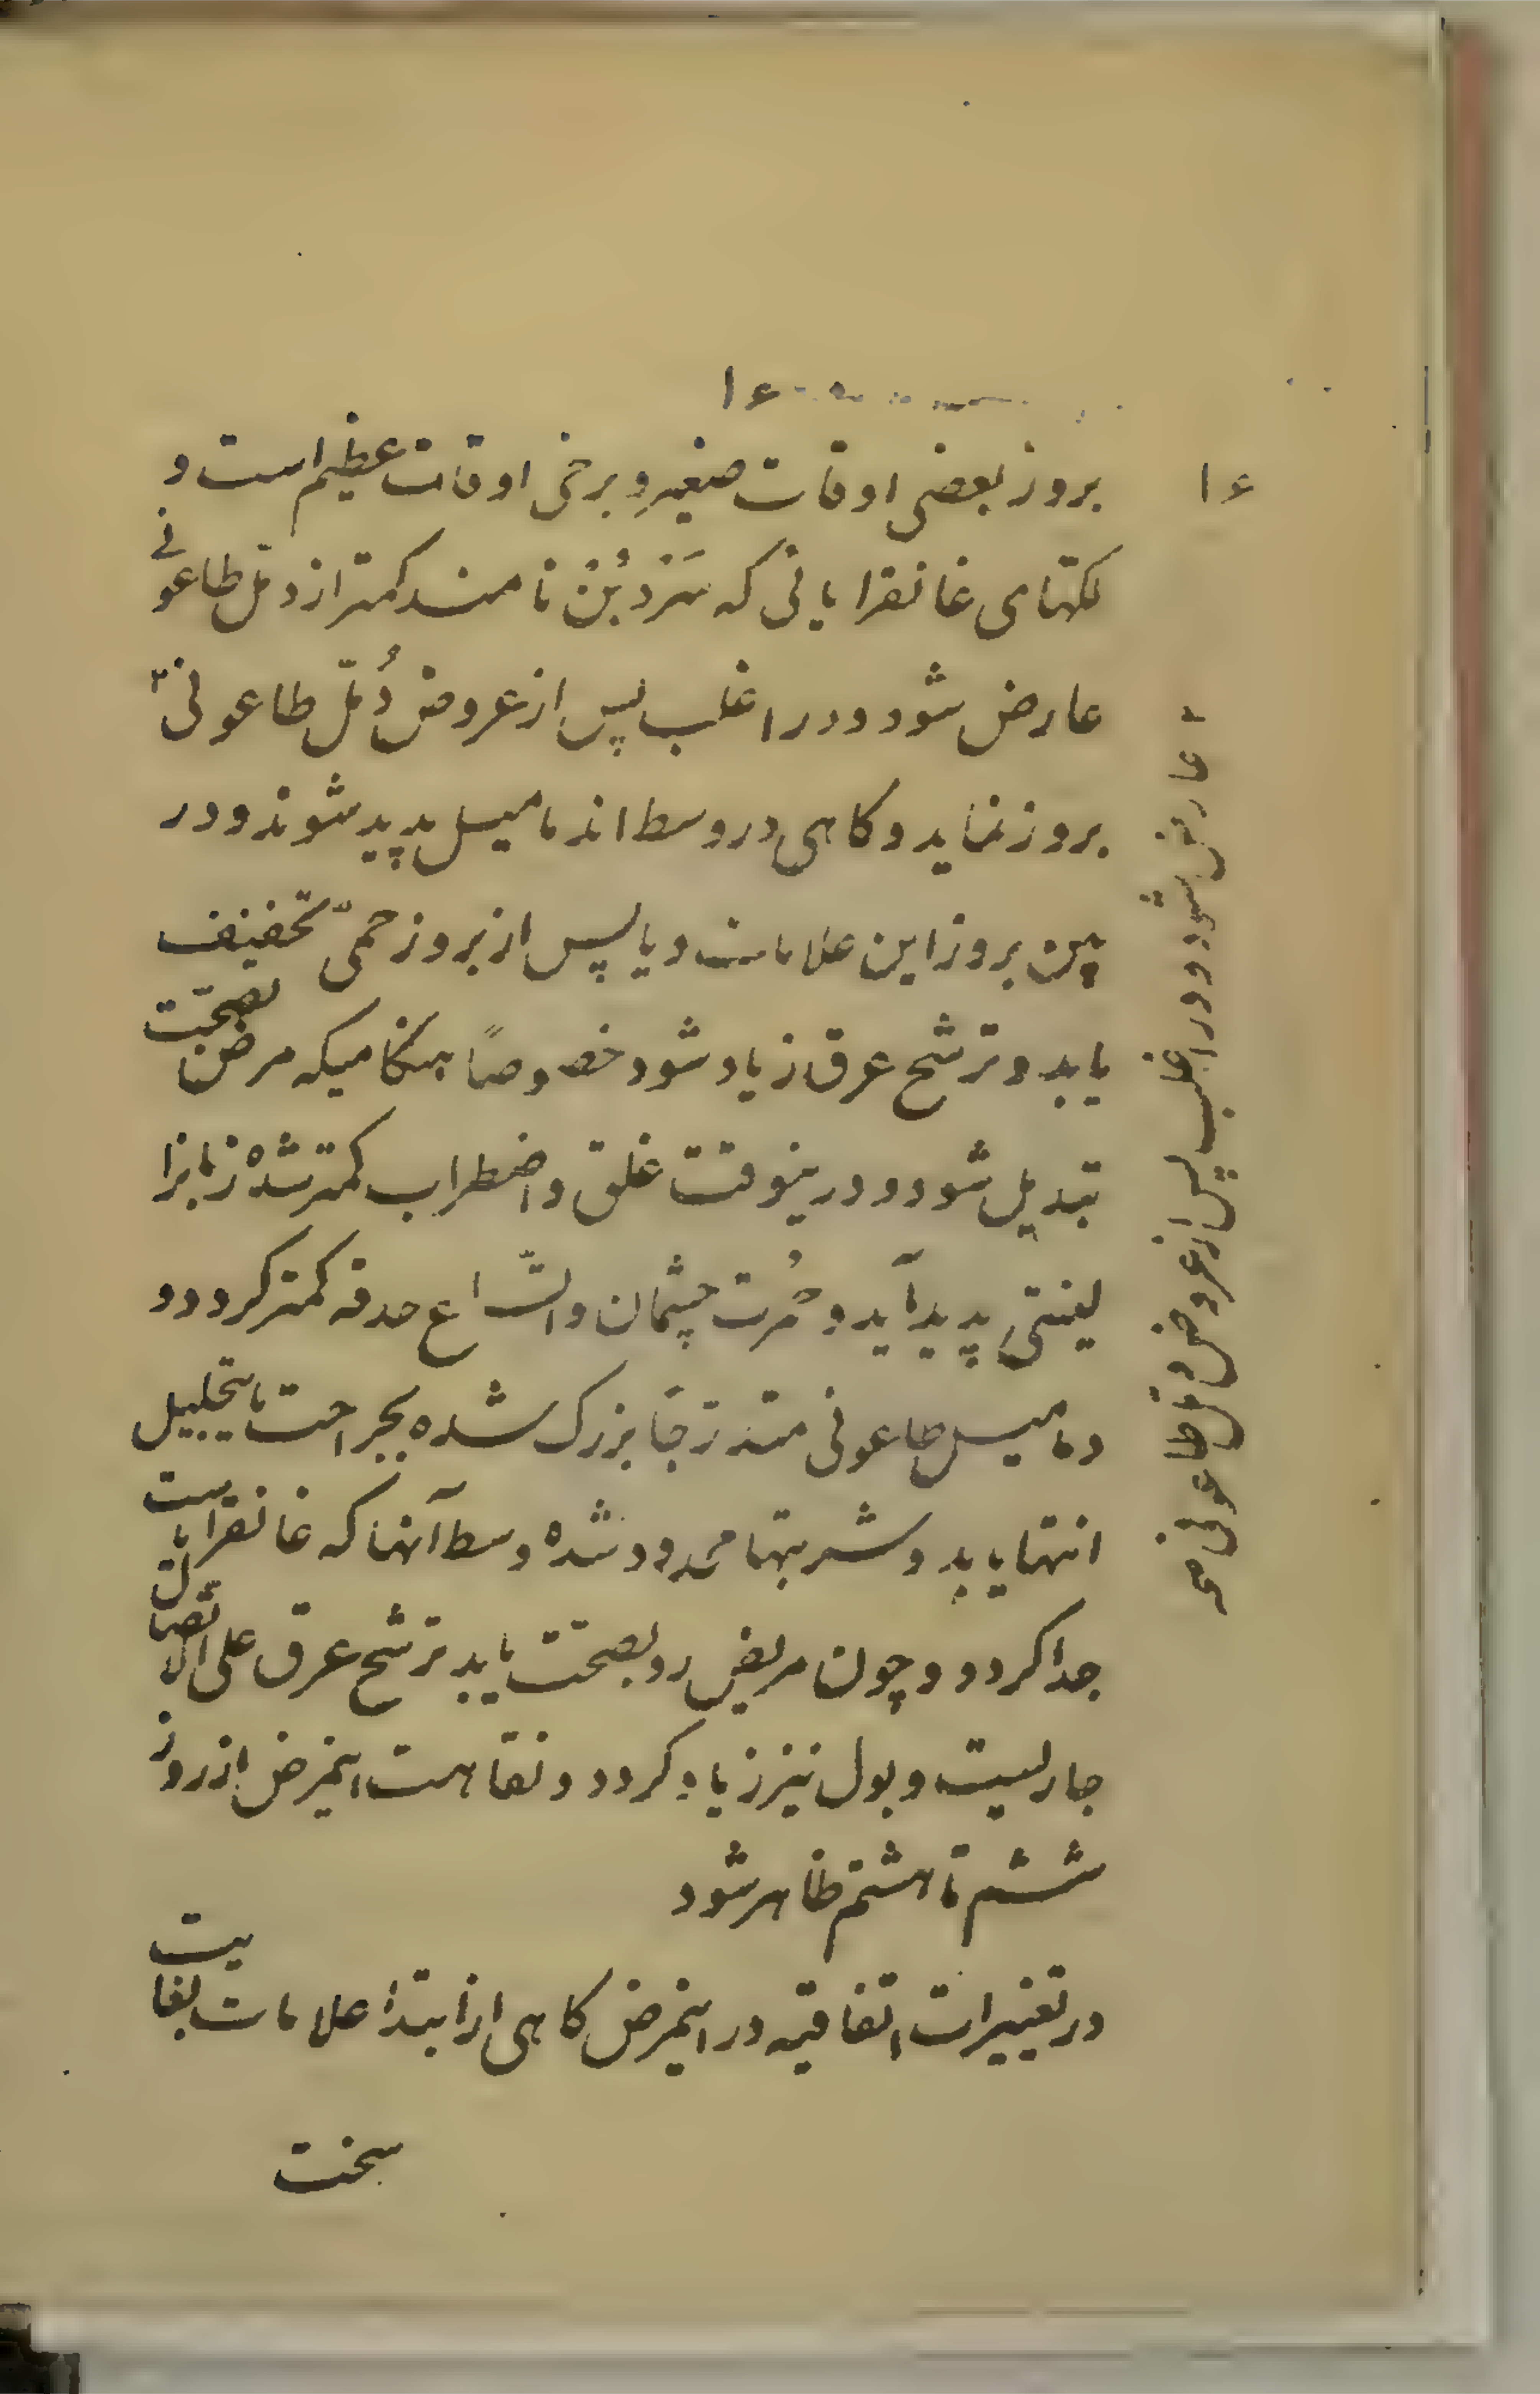 ۱۶
۱۶
بروز بعضی اوقات صغیر و برخی اوقات عظیم است و
لکهای غانقرایائی که نامند کمتر از دمّل طاعونی
عارض شود و در اغلب پس از عروض دُمّل طاعونی
بروز نماید و کاهی در وسط اندمامیل پدید شوند و در
حین بروز این علامات و یا پس از بروز حمّی تخفیف
یابد و ترشح عرق زیاد شود خصوصاً هنکامیکه مرض بصحّت
تبدیل شود و درینوقت غلق و اضطراب کمتر شده زبانرا
لینتی پدید آید و حُمرت چشمان و اتّساع حدقه کمتر کردد و
دمامیل طاعونی متدرّجاً بزرک شده بجراحت یا بتحلیل
انتها یابد و شربتها محدود شده وسط آنها که غانقرایاست
جدا کردد و چون مریض رو بصحّت یابد ترشح عرق علی الاتّصال
جاریست و بول نیز زیاد کردد و نقاهت اینمرض از روز
ششم تا هشتم ظاهر شود
در تغییرات اتفاقیه در اینمرض کاهی از ابتدا علامات بغایت
سخت
عارض شود و در اغلب پس از عروض دمّل طاعونی صح